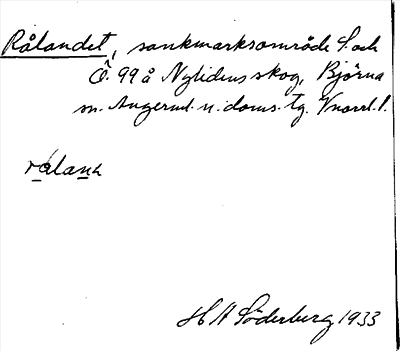 Rålandet, sankmarksområde S. och
Ö. 99 å Nylidens skog, Björna
sn. Ångerml. n. doms. tg. Vnorrl. l.
rålanḁ
H A Söderberg 1933